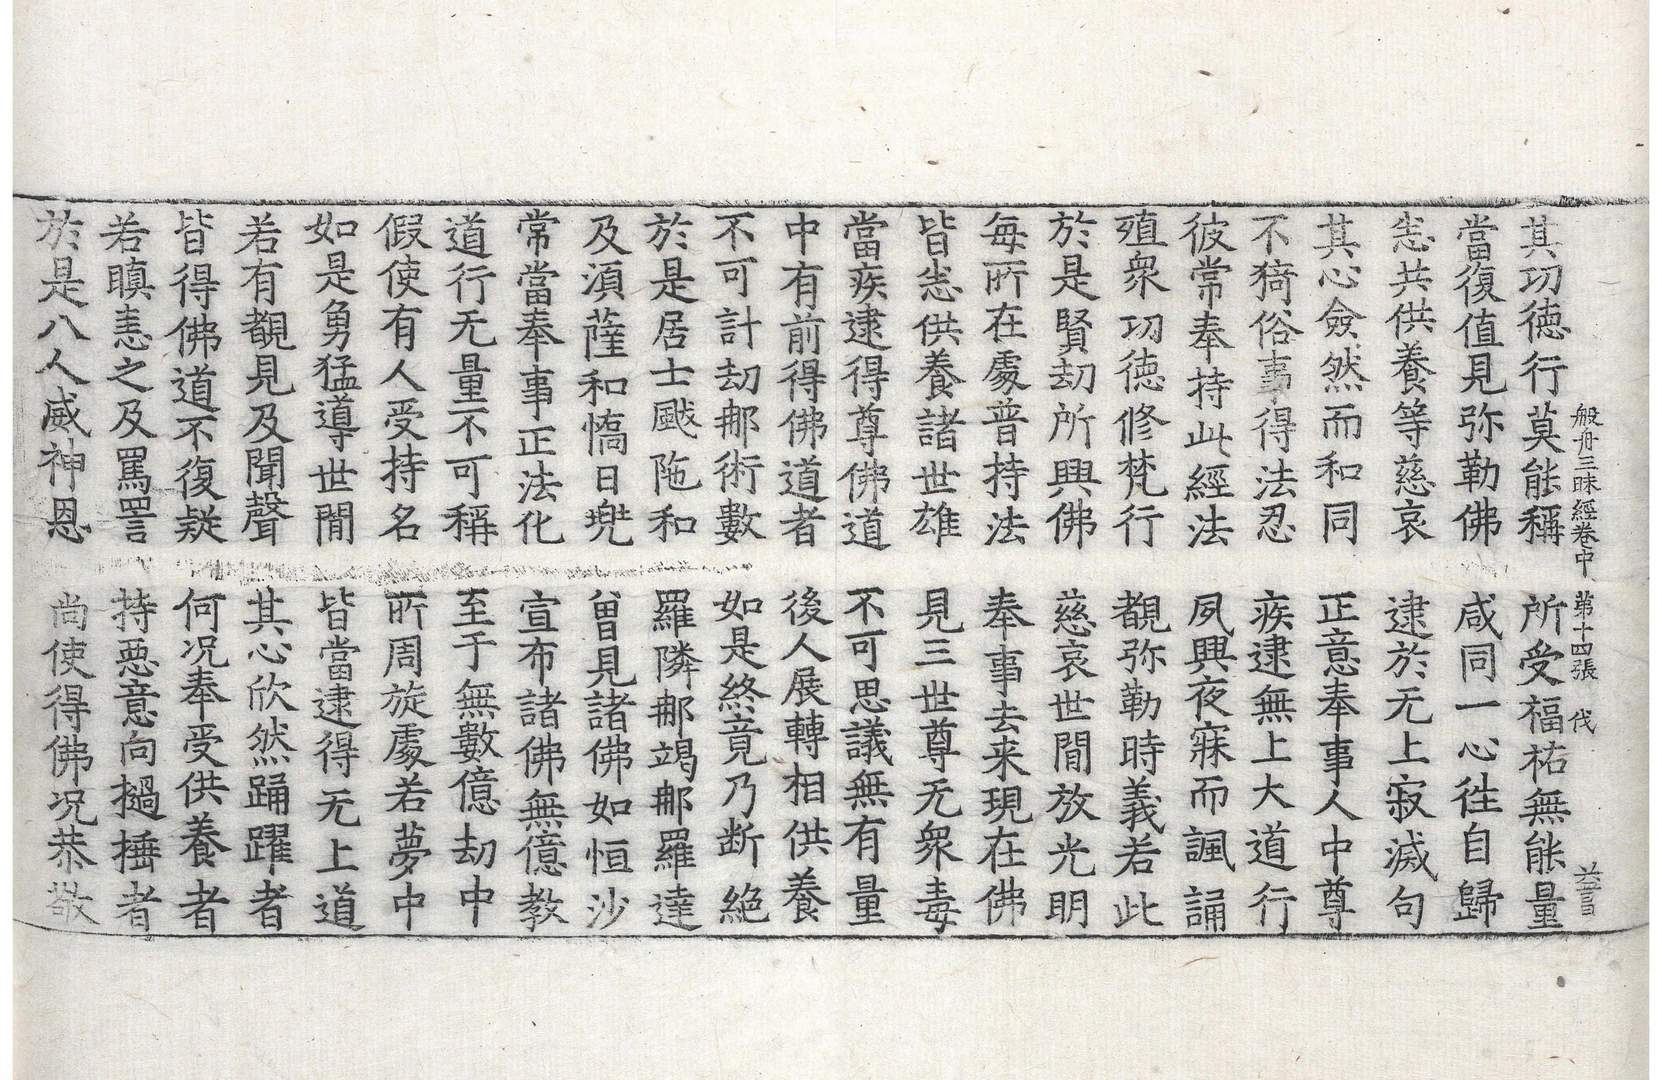 般舟三昧經卷中　第十四張　伐　益書
其功德行莫能稱　所受福祐無能量
當復值見弥勒佛　咸同一心往自歸
恚共供養等慈哀　逮於无上寂滅句
其心僉然而和同　正意奉事人中尊
不猗俗事得法忍　疾逮無上大道行
彼常奉持此經法　夙興夜寐而諷誦
殖衆功徳修梵行　覩弥勒時義若此
於是賢劫所興佛　慈哀世閒放光明
每所在處普持法　奉事去来現在佛
皆恚供養諸世雄　見三世尊无衆毒
當疾逮得尊佛道　不可思議無有量
中有前得佛道者　後人展轉相供養
不可計劫郍術數　如是終竟乃断絕
於是居士颰陁和　羅隣郍竭郍羅達
及湏薩和憍日兜　曾見諸佛如恒沙
常當奉事正法化　宣布諸佛無億教
道行无量不可稱　至于無數億劫中
假使有人受持名　所周旋處若夢中
如是勇猛導世閒　皆當逮得无上道
若有覩見及聞聲　其心欣然踊躍者
皆得佛道不復疑　何况奉受供養者
若瞋恚之及罵詈　持惡意向撾捶者
於是八人威神恩　尚使得佛况恭敬